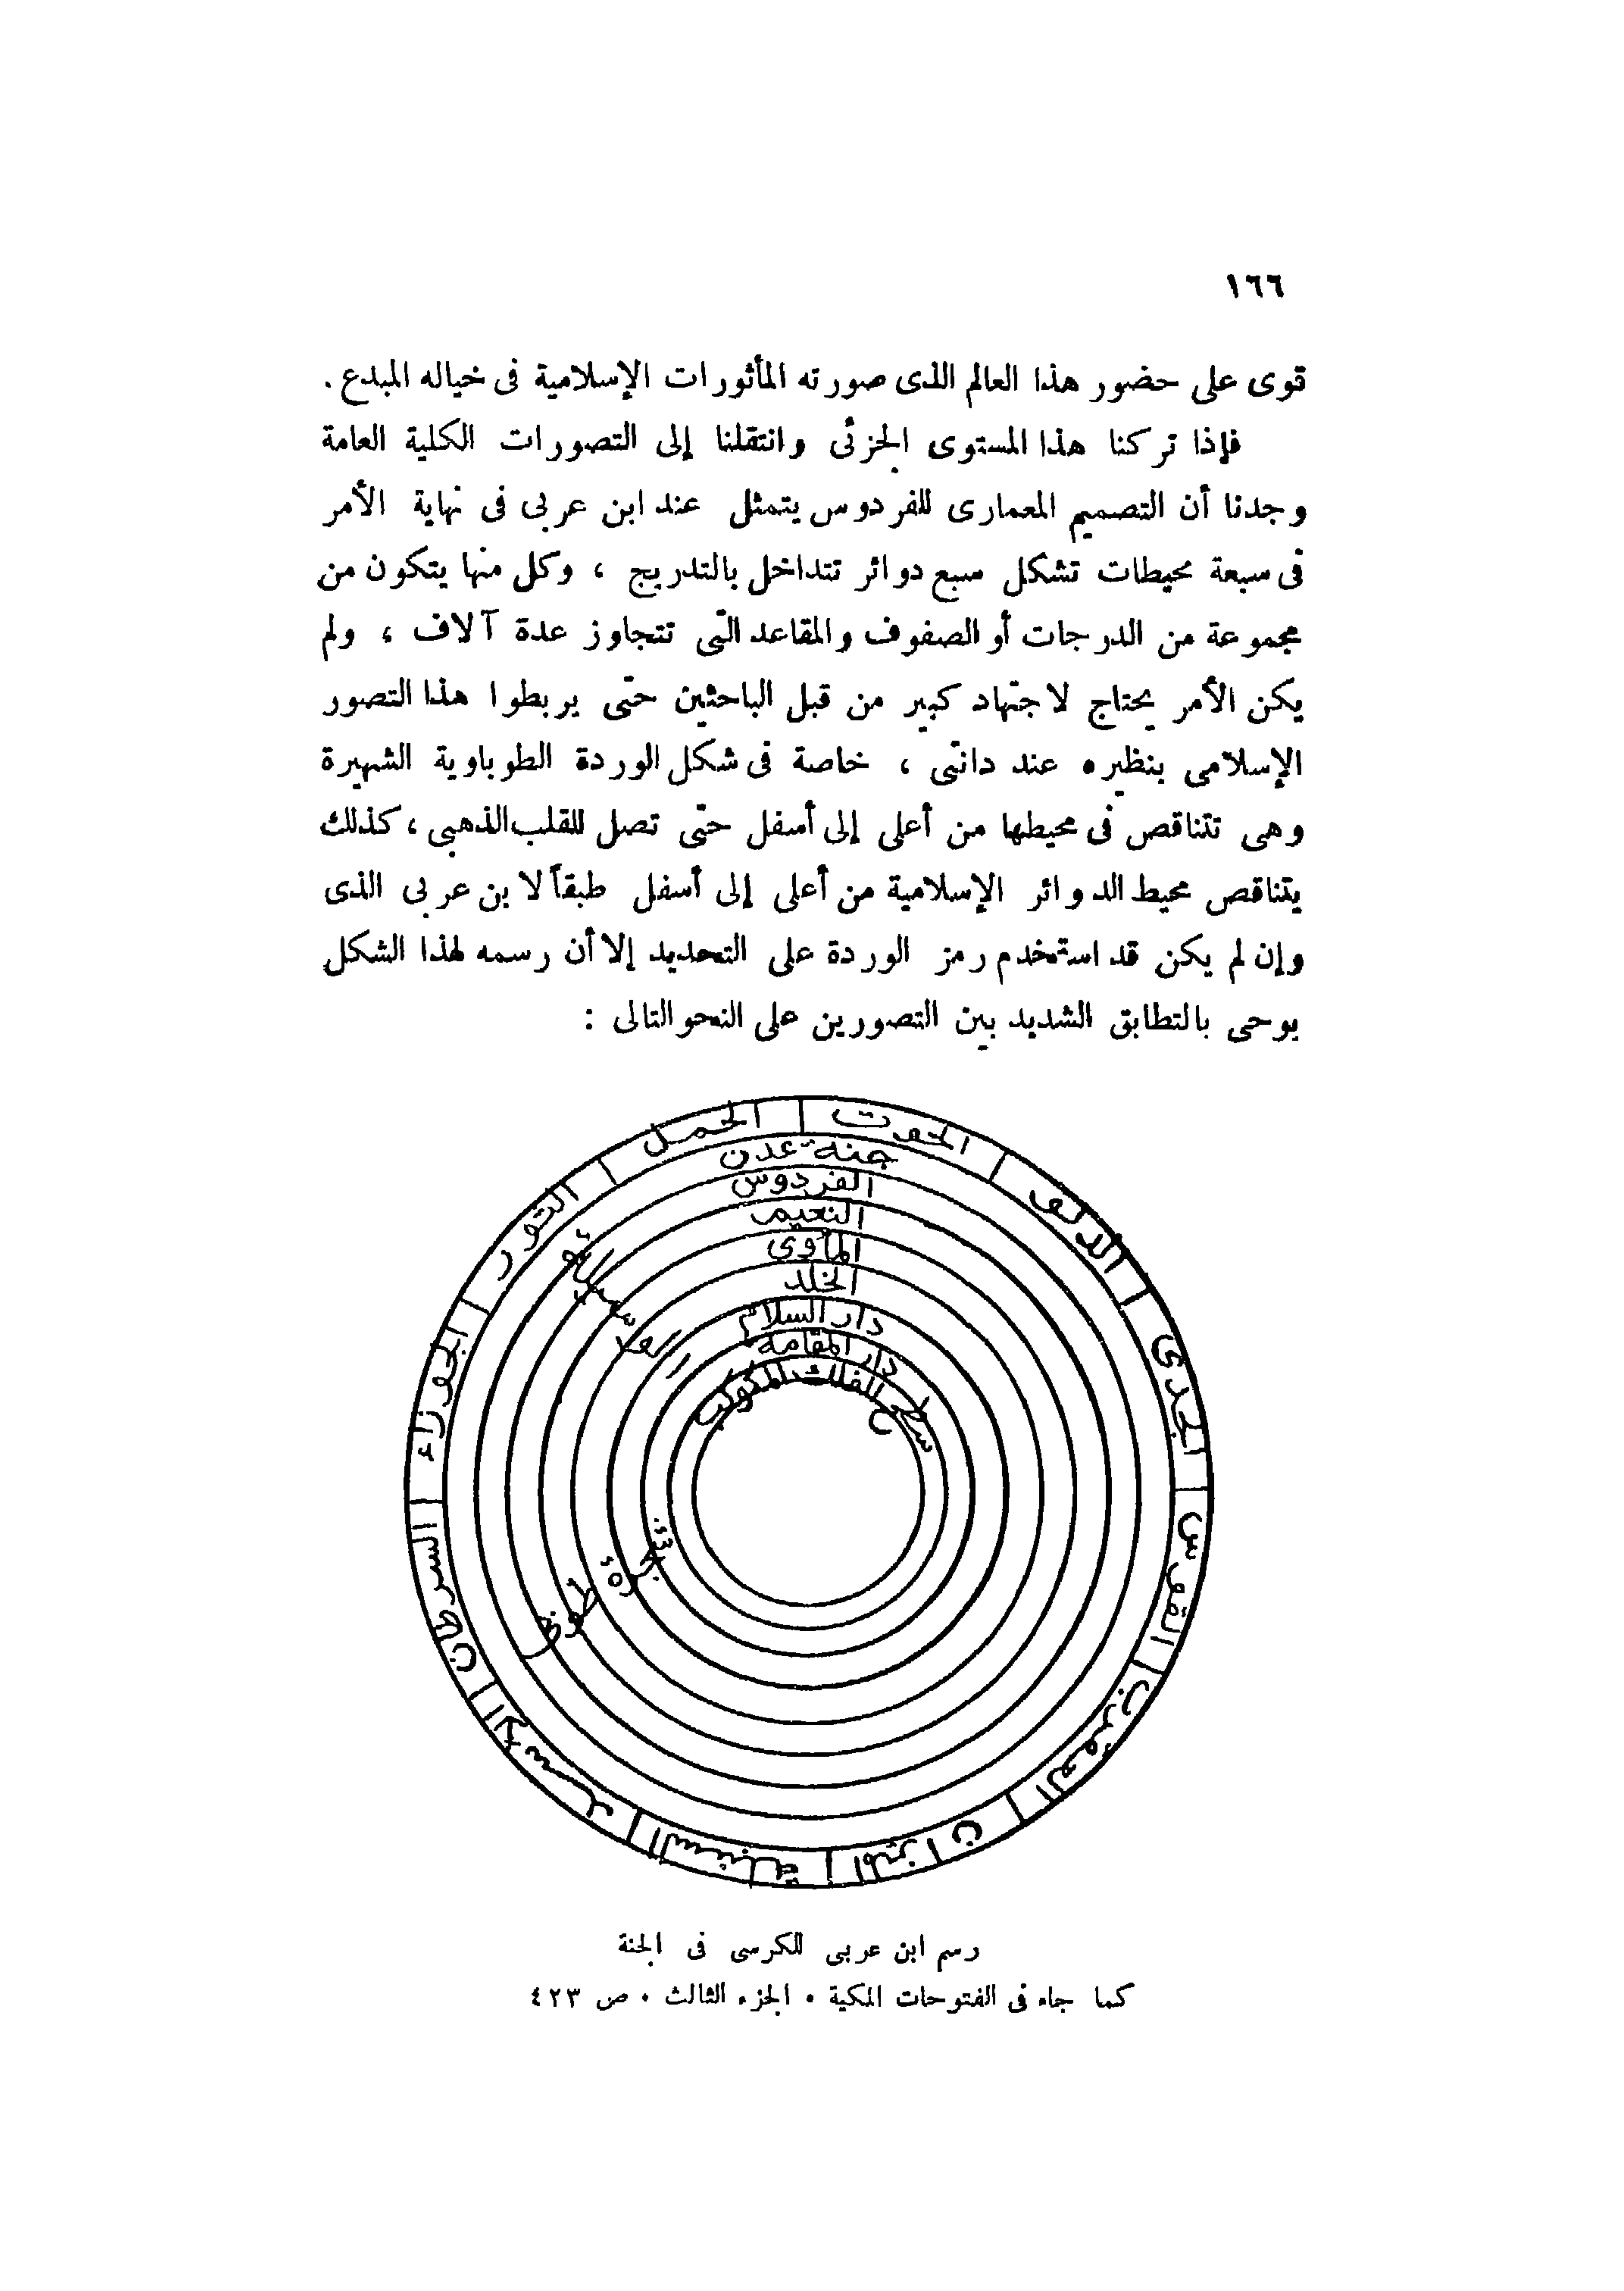 ١٦٦
قوى على حضور هذا العالم الذى صورته المأثورات الإسلامية فى خياله المبدع .
فإذا تركنا هذا المستوى الجزئى وانتقلنا إلى التصورات الكلية العامة
وجدنا أن التصميم المعمارى للفردوس يتمثل عند ابن عربى فى نهاية الأمر
فى سبعة محيطات تشكل سبع دوائر تتداخل بالتدريج ، وكل منها يتكون من
مجموعة من الدرجات أو الصفوف والمقاعد التى تتجاوز عدة آلاف ، ولم
يكن الأمر يحتاج لاجتهاد كبير من قبل الباحثين حتى يربطوا هذا التصور
الإسلامى بنظيره عند دانتى ، خاصة فى شكل الوردة الطوباوية الشهيرة
وهى تتناقص فى محيطها من أعلى إلى أسفل حتى تصل للقلب الذهبى ، كذلك
يتناقص محيط الدوائر الإسلامية من أعلى إلى أسفل طبقاً لابن عربى الذى
وإن لم يكن قد استخدم رمز الوردة على التحديد إلا أن رسمه لهذا الشكل
يوحى بالتطابق الشديد بين التصورين على النحو التالى :
الحوت
الدلو
الجدى
القوس
العقرب
الميزان
السنبلة
الأسد
السرطان
الجوزاء
الثور
الحمل
جنة عدن
الفردوس
النعيم
المأوى
الخلد
دار السلام
دار المقامة
سطح الفلك المكوكب
شجرة طوبى
رسم ابن عربى للكرسى فى الجنة
كما جاء فى الفتوحات المكية . الجزء الثالث . ص ٤٢٣